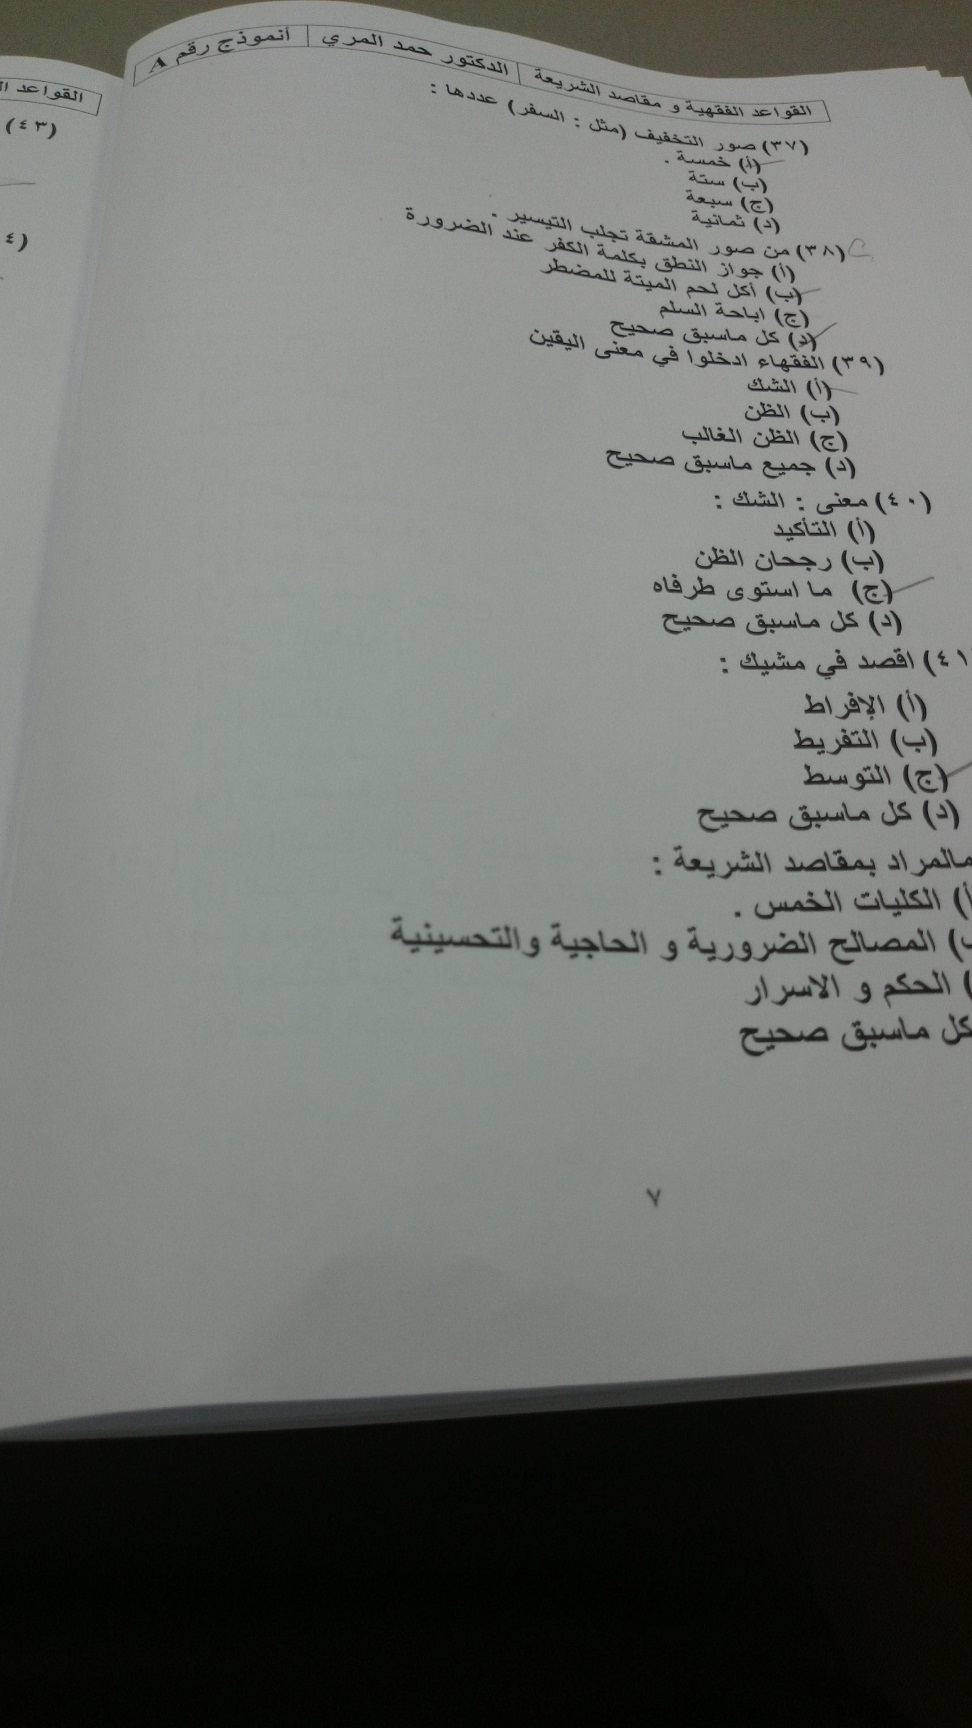 القواعد الفقهية و مقاصد الشريعة | الدكتور حمد المري | أنموذج رقم A
(٣٧) صور التخفيف (مثل : السفر) عددها :
(أ) خمسة .
(ب) ستة
(ج) سبعة
(د) ثمانية
(٣٨) من صور المشقة تجلب التيسير .
(أ) جواز النطق بكلمة الكفر عند الضرورة
(ب) أكل لحم الميتة للمضطر
(ج) اباحة السلم
(د) كل ماسبق صحيح
(٣٩) الفقهاء ادخلوا في معنى اليقين
(أ) الشك
(ب) الظن
(ج) الظن الغالب
(د) جميع ماسبق صحيح
(٤٠) معنى : الشك :
(أ) التأكيد
(ب) رجحان الظن
(ج) ما استوى طرفاه
(د) كل ماسبق صحيح
٤١) اقصد في مشيك :
(أ) الإفراط
(ب) التفريط
(ج) التوسط
(د) كل ماسبق صحيح
مالمراد بمقاصد الشريعة :
أ) الكليات الخمس .
ب) المصالح الضرورية و الحاجية والتحسينية
) الحكم و الاسرار
كل ماسبق صحيح
٧
القواعد ال
(٤٣)